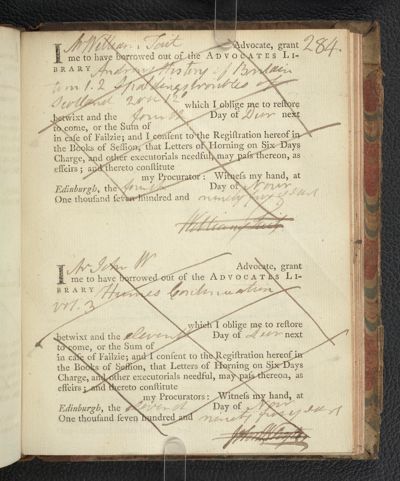 284.
I Mr William Tait Advocate, grant
me to have borrowed out of the ADVOCATES LI-
BRARY Andrews History of Britain
tom 1. 2 Spaldings troubles of
Scotland 2 vol. 12º
which I oblige me to restore
betwixt and the fourth Day of Decr next
to come, or the Sum of
in case of Failzie; and I consent to the Registration hereof in
the Books of Session, that Letters of Horning on Six Days
Charge, and other executorials needful, may pass thereon, as
effeirs; and thereto constitute
my Procurator: Witness my hand, at
Edinburgh, the fourth Day of Novr
One thousand seven hundred and ninety
William Tait
I Mr John W Advocate, grant
me to have borrowed out of the ADVOCATES LI-
BRARY Humes Continuation
vol. 3
which I oblige me to restore
betwixt and the eleventh Day of Decr next
to come, or the Sum of
in case of Failzie; and I consent to the Registration hereof in
the Books of Session, that Letters of Horning on Six Days
Charge, and other executorials needful, may pass thereon, as
effeirs; and thereto constitute
my Procurators: Witness my hand, at
Edinburgh, the eleventh Day of Novr
One thousand seven hundred and ninety